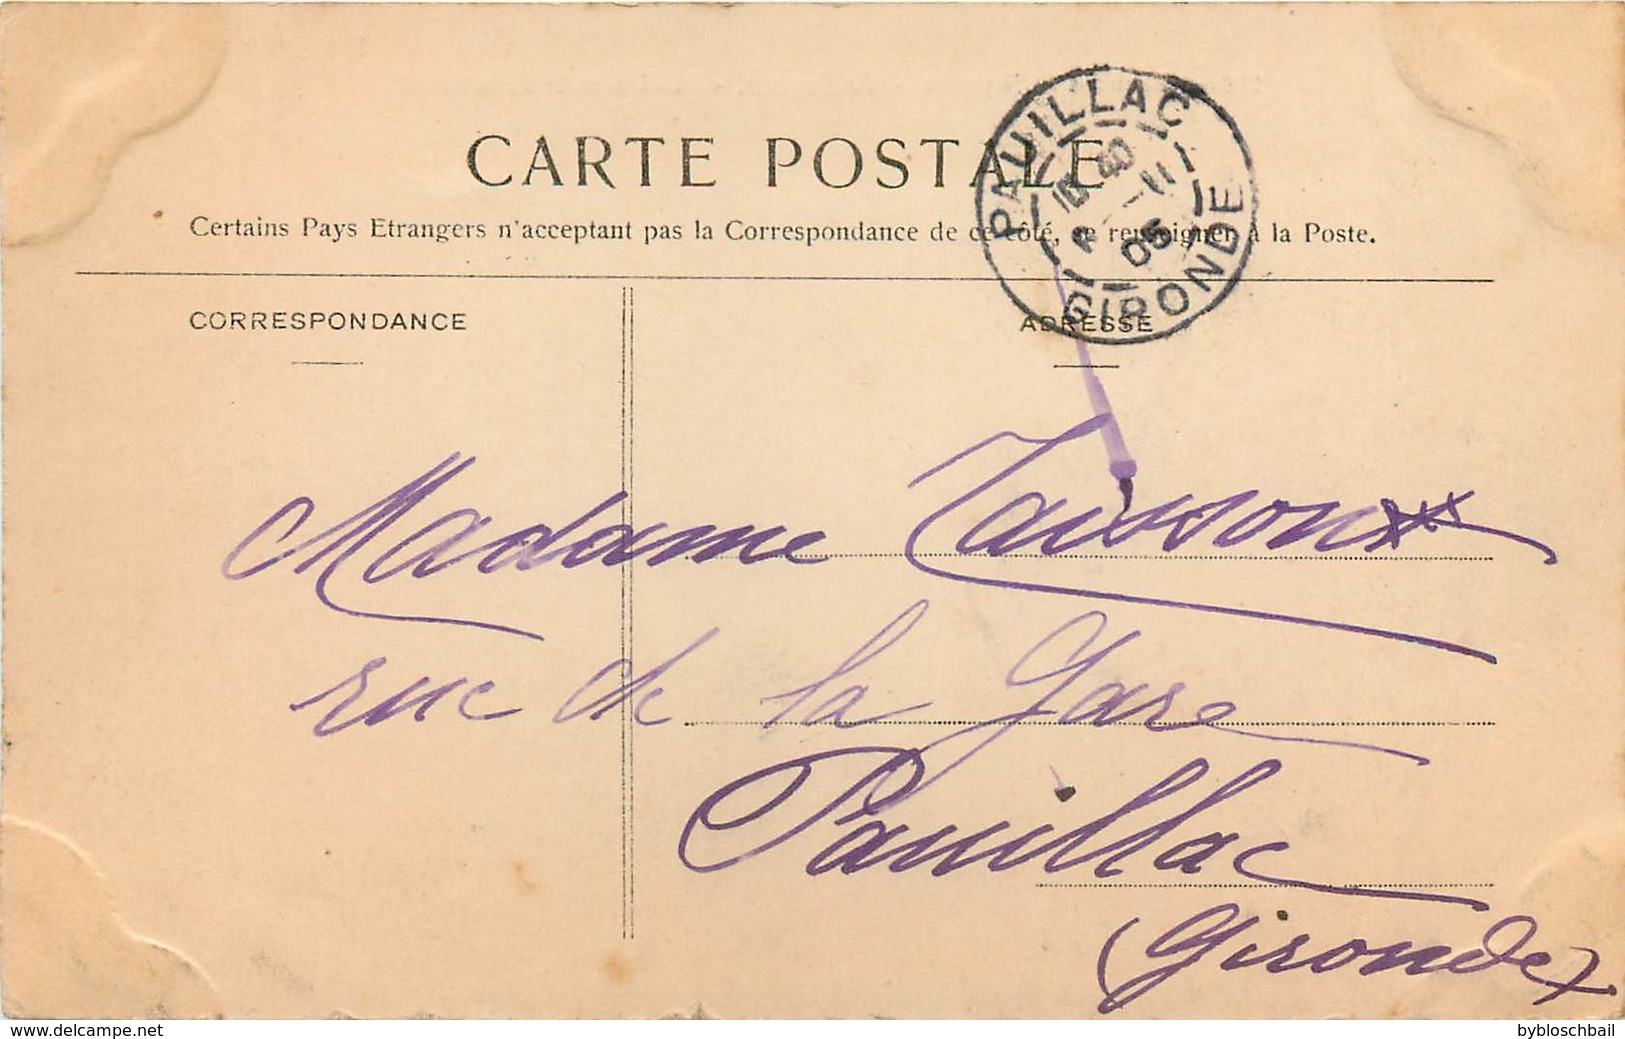 CARTE POSTALE
Certains Pays Etrangers n'acceptant pas la Correspondance de ce côté, se renseigner à la Poste.
PAUILLAC
GIRONDE
10 40
11
05
CORRESPONDANCE
ADRESSE
Madame
rue de la Gare
Pauillac
(Gironde)
www.delcampe.net
bybloschbail